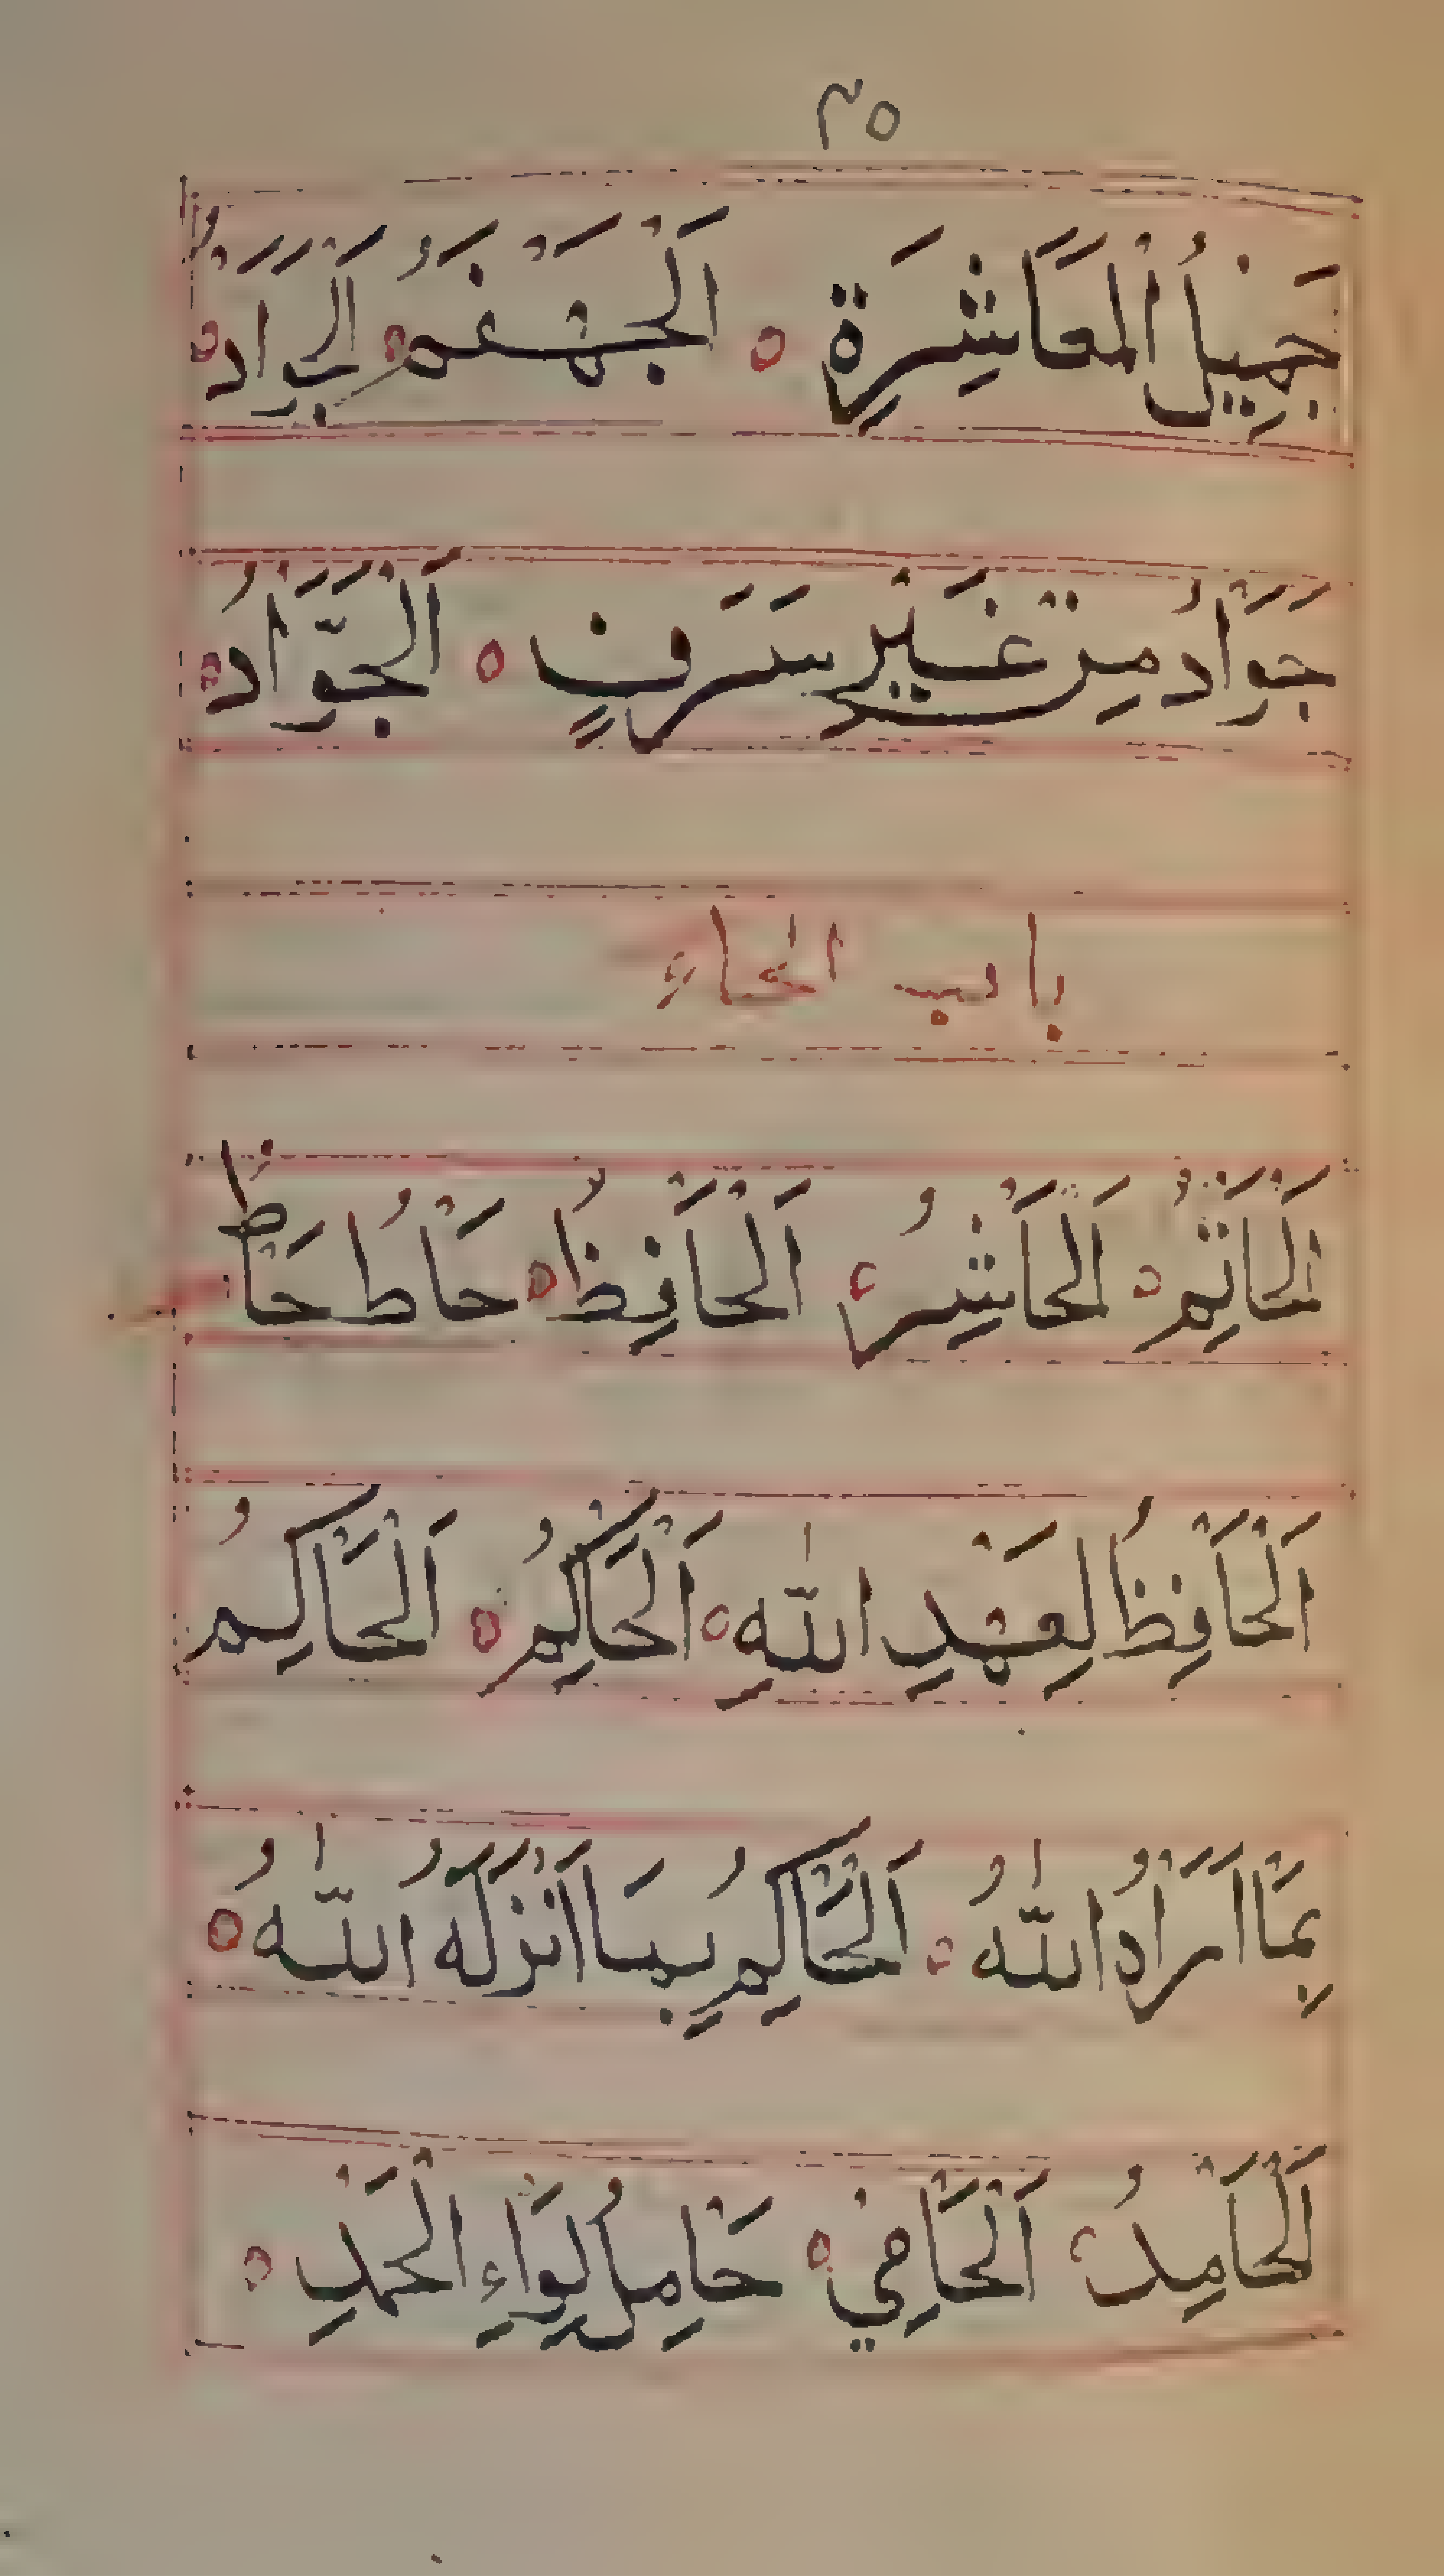 ٣٥
جَمِيْلُ الْمُعَاشَرَةِ ٥ اَلْجَهْضَمُ ٥ اَلْجَوَادُ ٥
جَوَادٌ مِنْ غَيْرِ سَرَفٍ ٥ اَلْجَوَّادُ ٥
باب الحاء
اَلْحَاتِمُ ٥ اَلْحَاشِرُ ٥ اَلْحَافِظُ ٥ حَاطُ حَاطُ
اَلْحَافِظُ لِعَهْدِ اللّٰهِ ٥ اَلْحَاكِمُ ٥ اَلْحَاكِمُ
بِمَا اَرَادَ اللّٰهُ ٥ اَلْحَاكِمُ بِمَا اَنْزَلَهُ اللّٰهُ ٥
اَلْحَامِدُ ٥ اَلْحَامِيْ ٥ حَامِلُ لِوَاءِ الْحَمْدِ ٥